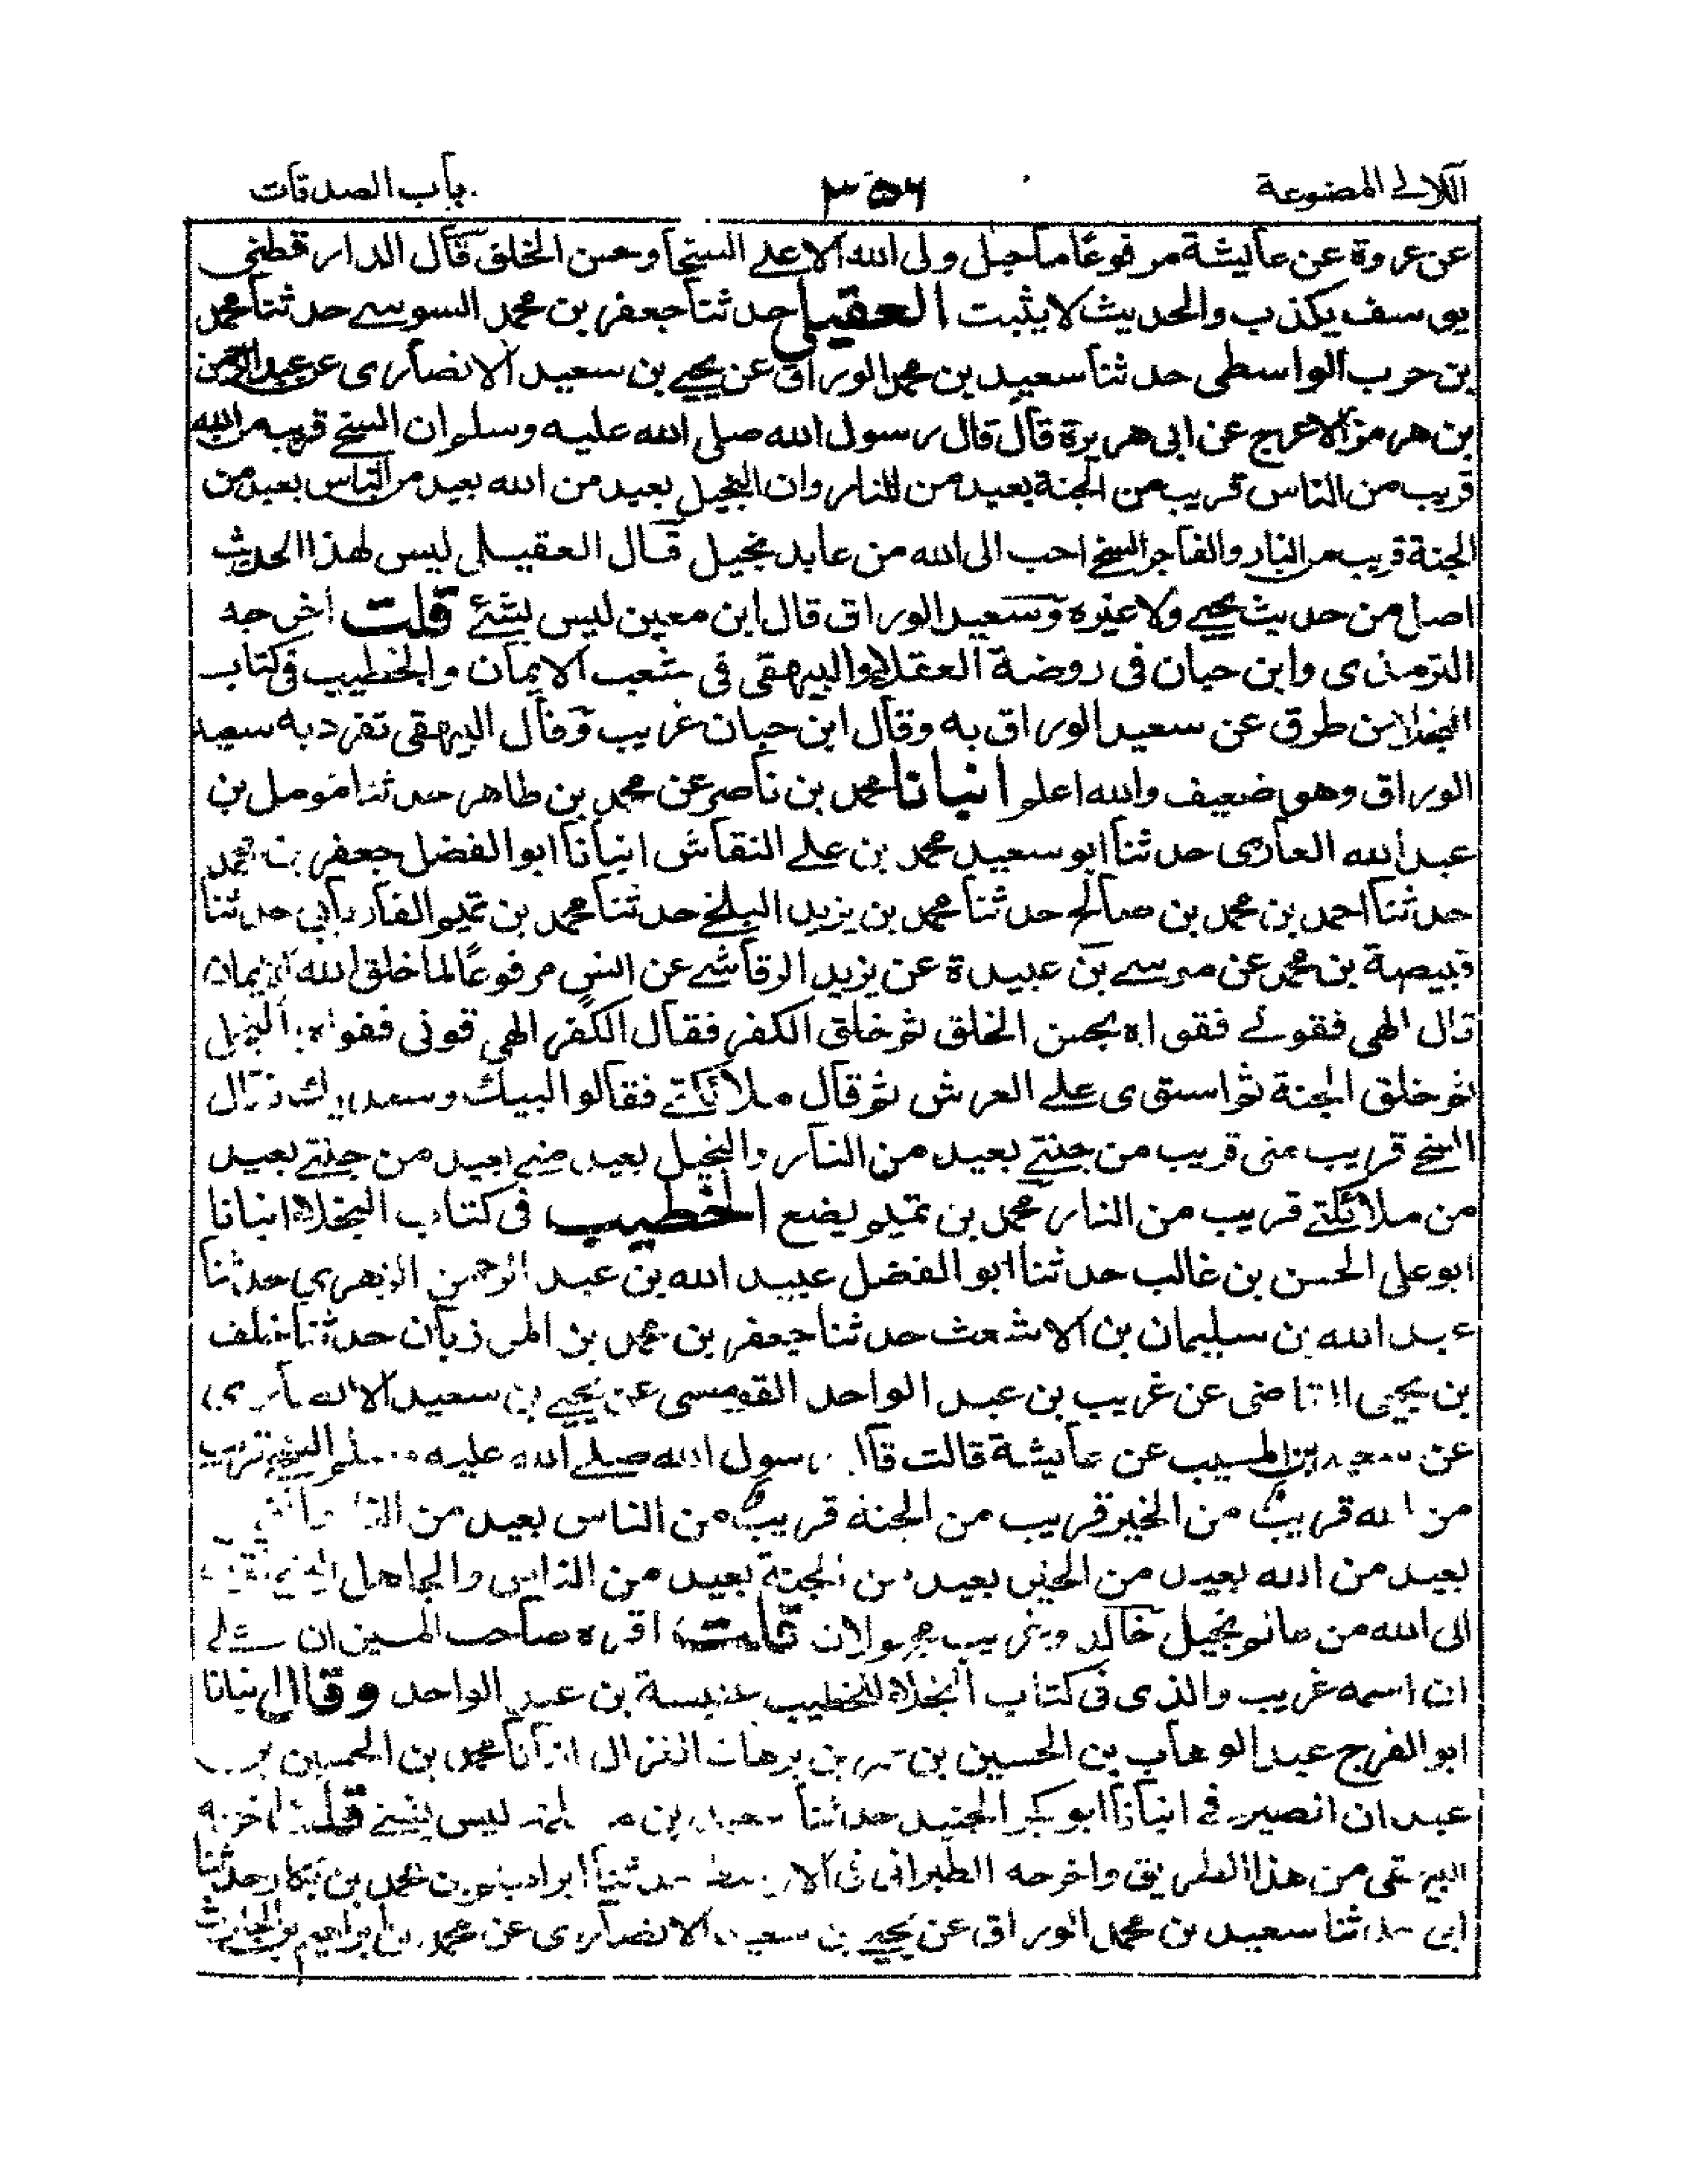 اللآلى المصنوعة ٣٥٦ باب الصدقات
عن عروة عن عايشة مرفوعًا ما جبل ولى الله الا على السخا وحسن الخلق قال الدارقطنى
يوسف يكذب والحديث لا يثبت العقيلى حدثنا جعفر بن محمد السوسے حدثنا محمد
بن حرب الواسطى حدثنا سعيد بن محمد الوراق عن يحيے بن سعيد الانصارى عن عبد الرحمن
بن هرمز الاعرج عن ابى هريرة قال قال رسول الله صلى الله عليه وسلم ان السخے قريب من الله
قريب من الناس قريب من الجنة بعيد من النار وان البخيل بعيد من الله بعيد من الناس بعيد من
الجنة قريب من النار والفاجر السخے احب الى الله من عابد بخيل قال العقيلى ليس لهذا الحديث
اصل من حديث يحيے ولا غيره وسعيد الوراق قال ابن معين ليس بشئے قلت اخرجه
الترمذى وابن حبان فى روضة العقلاء والبيهقى فى شعب الايمان والخطيب فى كتاب
البخلاء من طرق عن سعيد الوراق به وقال ابن حبان غريب وقال البيهقى تفرد به سعيد
الوراق وهو ضعيف والله اعلم انبانا محمد بن ناصر عن محمد بن طاهر حدثنا مومل بن
عبد الله العازى حدثنا ابو سعيد محمد بن علے النقاش انبانا ابو الفضل جعفر بن محمد
حدثنا احمد بن محمد بن صالح حدثنا محمد بن يزيد البلخے حدثنا محمد بن تميم الفاريابى حدثنا
قبيصة بن محمد عن موسے بن عبيدة عن يزيد الرقاشے عن انس مرفوعًا لما خلق الله الايمان
قال الهى فقونے فقواه بحسن الخلق ثم خلق الكفر فقال الكفر الهى قونى فقواه بالبخل
ثم خلق الجنة ثم استوى علے العرش ثم قال ملائكتے فقالوا لبيك وسعديك قال
السخے قريب منى قريب من جنتے بعيد من النار والبخيل بعيد منے بعيد من جنتے بعيد
من ملائكتے قريب من النار محمد بن تميم يضع الخطيب فى كتاب البخلاء انبانا
ابو على الحسن بن غالب حدثنا ابو الفضل عبيد الله بن عبد الرحمن الزهري حدثنا
عبد الله بن سليمان بن الاشعث حدثنا جعفر بن محمد بن المرزبان حدثنا خلف
بن يحيى القاضى عن غريب بن عبد الواحد القومسى عن يحيے بن سعيد الانصاري
عن سعيد بن المسيب عن عايشة قالت قال رسول الله صلے الله عليه وسلم السخے قريب
من الله قريب من الخير قريب من الجنة قريب من الناس بعيد من النار
بعيد من الله بعيد من الخير بعيد من الجنة بعيد من الناس والجاهل السخے
الى الله من عالم بخيل خالد وغريب مجهولان قلت اقره صاحب الميزان علے
ان اسمه غريب والذى فى كتاب البخلاء للخطيب عنبسة بن عبد الواحد وقال انبانا
ابو الفرج عبد الوهاب بن الحسين بن عمر بن برهان الغزال انبانا محمد بن الحسين
عبدان الصيرفے انبانا ابو بكر الجنيد حدثنا سعيد بن ليس بشئے قلت اخرجه
البيهقى من هذا الطريق واخرجه الطبرانى فى الاوسط حدثنا ابراهيم محمد بن بكار حدثنا
ابى حدثنا سعيد بن محمد الوراق عن يحيے بن سعيد الانصارى عن محمد بن ابراهيم بن الحارث